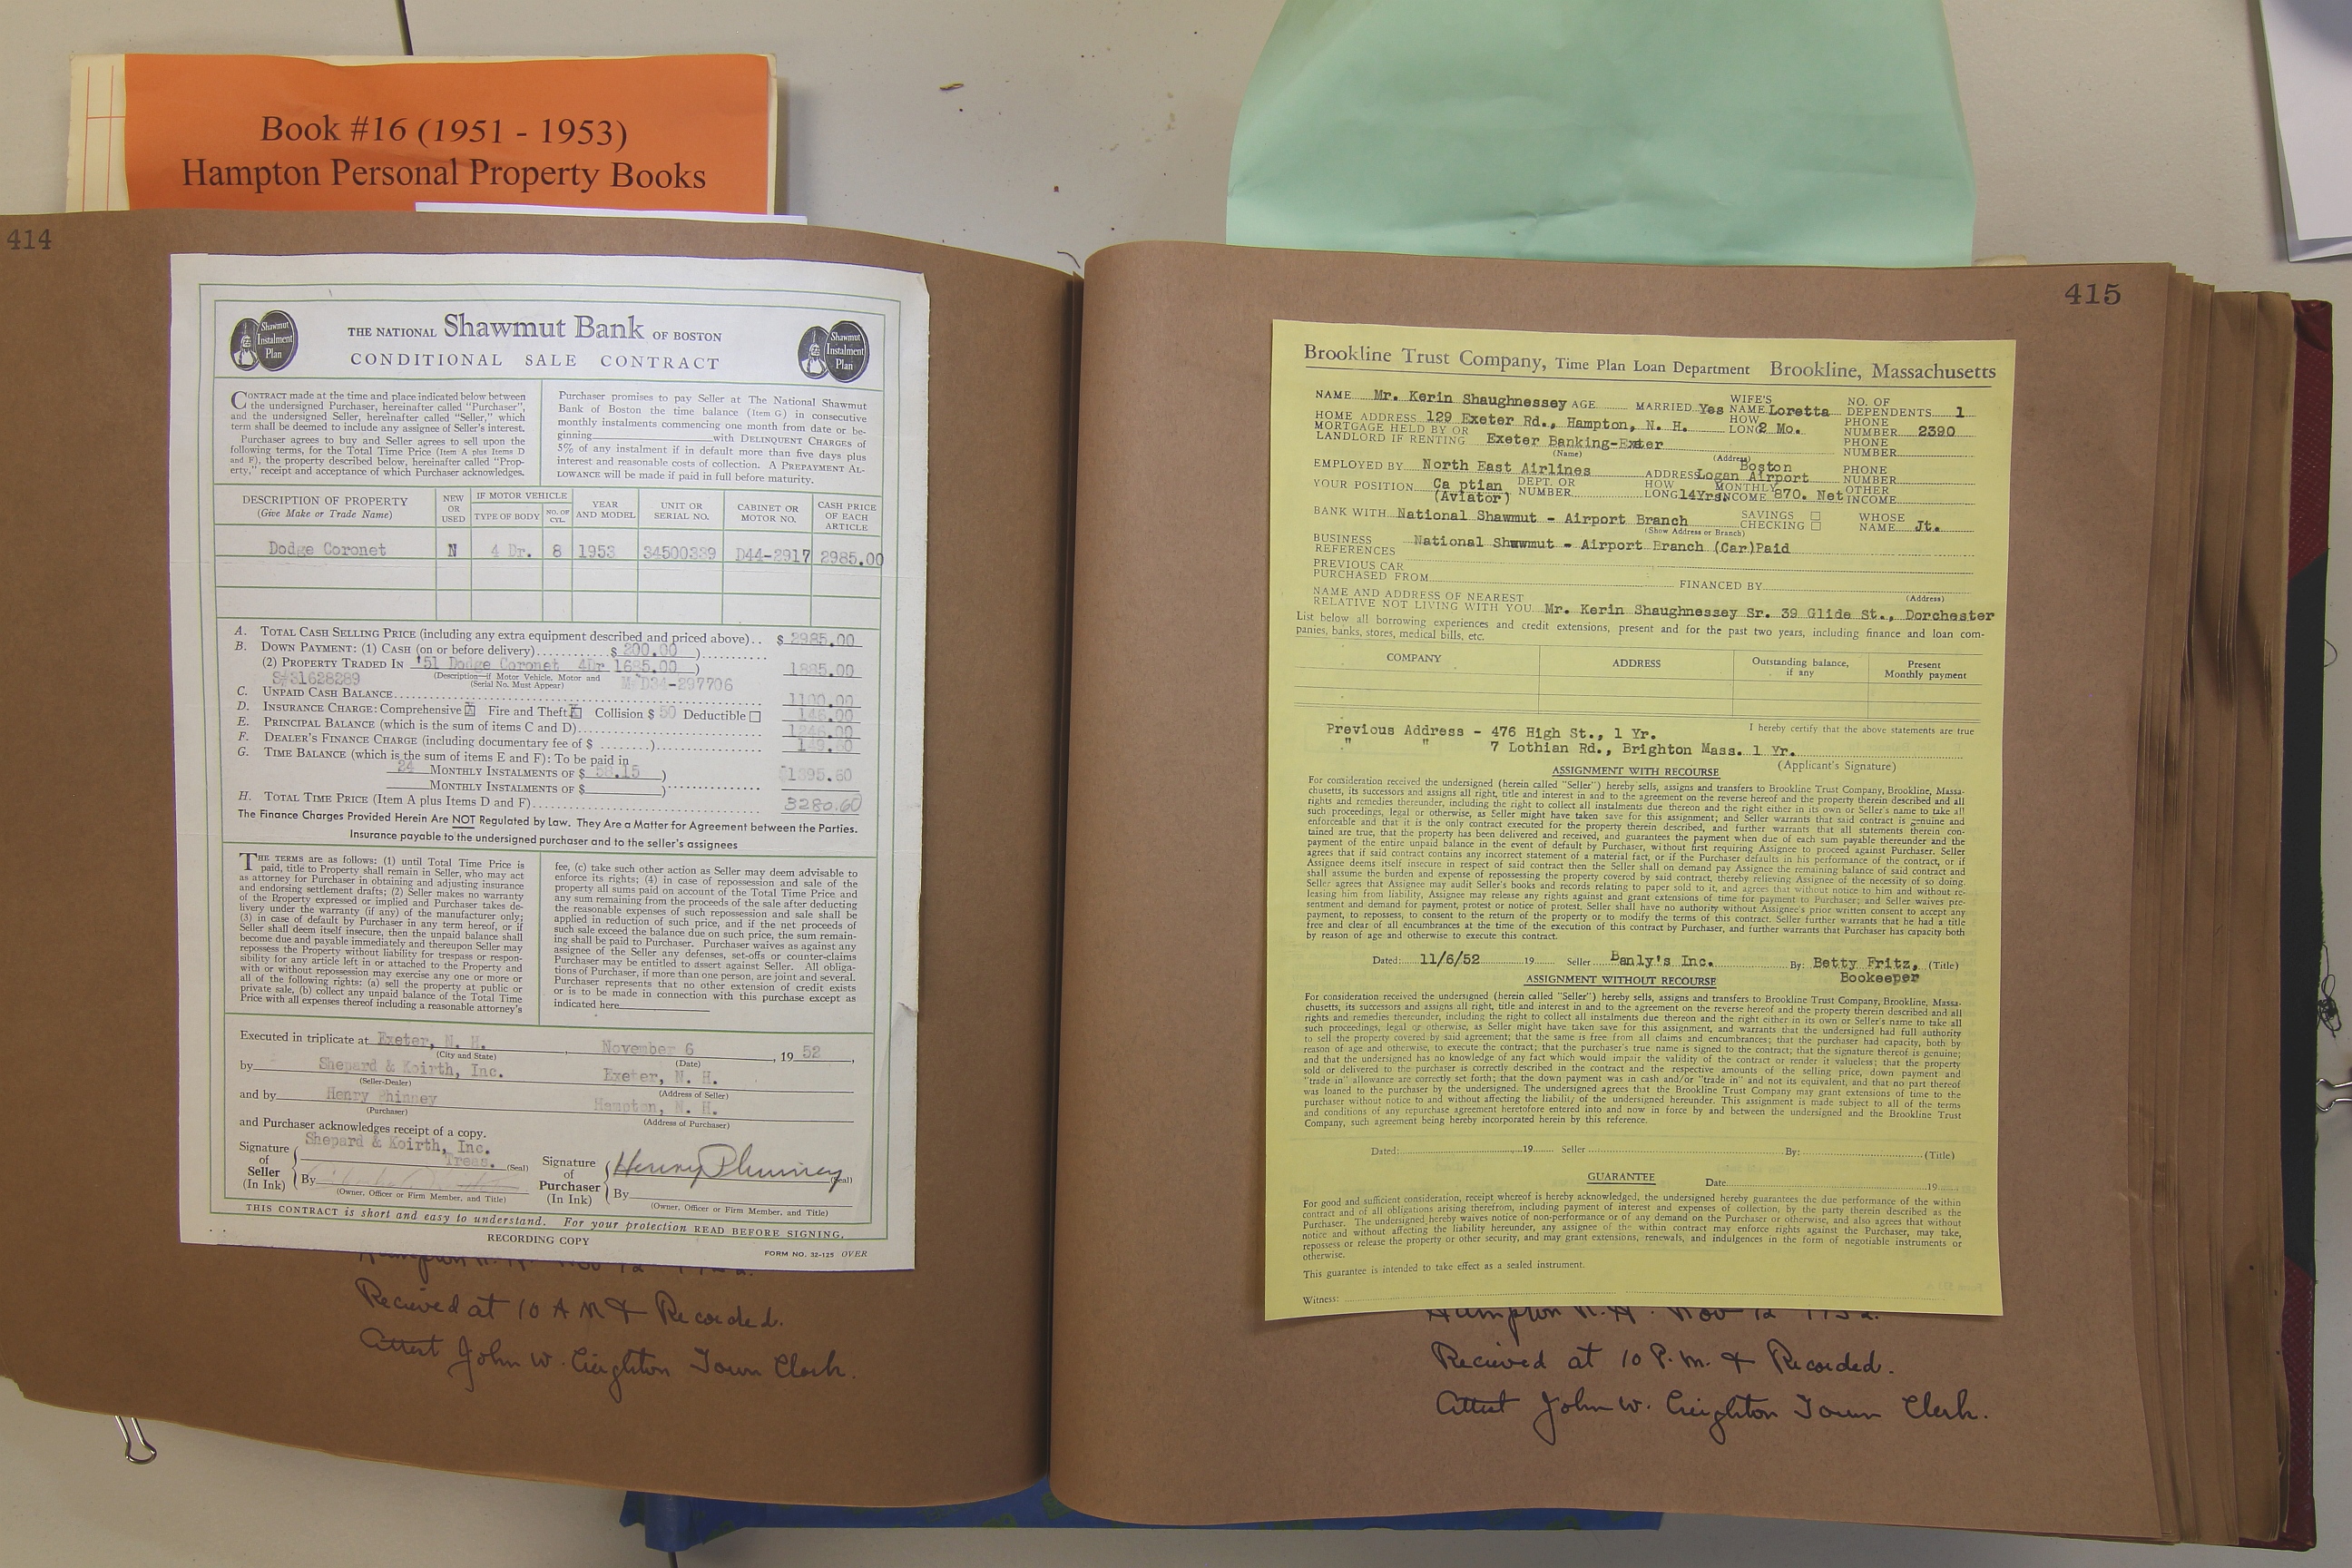 Book #16 (1951 - 1953)
Hampton Personal Property Books
414
Shawmut
Instalment
Plan
THE NATIONAL Shawmut Bank OF BOSTON
CONDITIONAL SALE CONTRACT
Shawmut
Instalment
Plan
CONTRACT made at the time and place indicated below between
the undersigned Purchaser, hereinafter called "Purchaser",
and the undersigned Seller, hereinafter called "Seller," which
term shall be deemed to include any assignee of Seller's interest.
Purchaser agrees to buy and Seller agrees to sell upon the
following terms, for the Total Time Price (Item A plus Items D
and F), the property described below, hereinafter called "Prop-
erty," receipt and acceptance of which Purchaser acknowledges.
Purchaser promises to pay Seller at The National Shawmut
Bank of Boston the time balance (Item G) in consecutive
monthly instalments commencing one month from date or be-
ginning with DELINQUENT CHARGES of
5% of any instalment if in default more than five days plus
interest and reasonable costs of collection. A PREPAYMENT AL-
LOWANCE will be made if paid in full before maturity.
DESCRIPTION OF PROPERTY
(Give Make or Trade Name)
NEW
OR
USED
IF MOTOR VEHICLE
TYPE OF BODY
NO. OF
CYL.
YEAR
AND MODEL
UNIT OR
SERIAL NO.
CABINET OR
MOTOR NO.
CASH PRICE
OF EACH
ARTICLE
Dodge Coronet N 4 Dr. 8 1953 34500339 D44-2917 2985.00
A. TOTAL CASH SELLING PRICE (including any extra equipment described and priced above).. $ 2985.00
B. DOWN PAYMENT: (1) CASH (on or before delivery) $ 200.00 )
(2) PROPERTY TRADED IN '51 Dodge Coronet 4Dr 1685.00 ) 1885.00
S#31628289 (Description—if Motor Vehicle, Motor and
(Serial No. Must Appear) M#D34-297706
C. UNPAID CASH BALANCE 1100.00
D. INSURANCE CHARGE: Comprehensive X Fire and Theft X Collision $ 50 Deductible 146.00
E. PRINCIPAL BALANCE (which is the sum of items C and D) 1246.00
F. DEALER'S FINANCE CHARGE (including documentary fee of $ ........) 149.60
G. TIME BALANCE (which is the sum of items E and F): To be paid in
24 MONTHLY INSTALMENTS OF $ 58.15 ) $1395.60
MONTHLY INSTALMENTS OF $ )
H. TOTAL TIME PRICE (Item A plus Items D and F) 3280.60
The Finance Charges Provided Herein Are NOT Regulated by Law. They Are a Matter for Agreement between the Parties.
Insurance payable to the undersigned purchaser and to the seller's assignees
THE TERMS are as follows: (1) until Total Time Price is
paid, title to Property shall remain in Seller, who may act
as attorney for Purchaser in obtaining and adjusting insurance
and endorsing settlement drafts; (2) Seller makes no warranty
of the Property expressed or implied and Purchaser takes de-
livery under the warranty (if any) of the manufacturer only;
(3) in case of default by Purchaser in any term hereof, or if
Seller shall deem itself insecure, then the unpaid balance shall
become due and payable immediately and thereupon Seller may
repossess the Property without liability for trespass or respon-
sibility for any article left in or attached to the Property and
with or without repossession may exercise any one or more or
all of the following rights: (a) sell the property at public or
private sale, (b) collect any unpaid balance of the Total Time
Price with all expenses thereof including a reasonable attorney's
fee, (c) take such other action as Seller may deem advisable to
enforce its rights; (4) in case of repossession and sale of the
property all sums paid on account of the Total Time Price and
any sum remaining from the proceeds of the sale after deducting
the reasonable expenses of such repossession and sale shall be
applied in reduction of such price, and if the net proceeds of
such sale exceed the balance due on such price, the sum remain-
ing shall be paid to Purchaser. Purchaser waives as against any
assignee of the Seller any defenses, set-offs or counter-claims
Purchaser may be entitled to assert against Seller. All obliga-
tions of Purchaser, if more than one person, are joint and several.
Purchaser represents that no other extension of credit exists
or is to be made in connection with this purchase except as
indicated here
Executed in triplicate at Exeter, N. H. , November 6 , 19 52 ,
(City and State) (Date)
by Shepard & Koirth, Inc. Exeter, N. H.
(Seller-Dealer) (Address of Seller)
and by Henry Phinney Hampton, N. H.
(Purchaser) (Address of Purchaser)
and Purchaser acknowledges receipt of a copy.
Signature
of
Seller
(In Ink)
Shepard & Koirth, Inc.
Treas. (Seal)
By
(Owner, Officer or Firm Member, and Title)
Signature
of
Purchaser
(In Ink)
Henry Phinney (Seal)
By
(Owner, Officer or Firm Member, and Title)
THIS CONTRACT is short and easy to understand. For your protection READ BEFORE SIGNING.
RECORDING COPY
FORM NO. 32-125 OVER
Hampton N. H. Nov 12 1952.
Recieved at 10 A M & Recorded.
Attest John W. Creighton Town Clerk.
415
Brookline Trust Company, Time Plan Loan Department Brookline, Massachusetts
NAME Mr. Kerin Shaughnessey AGE MARRIED Yes WIFE'S NAME Loretta NO. OF DEPENDENTS 1
HOME ADDRESS 129 Exeter Rd., Hampton, N. H. HOW LONG 2 Mo. PHONE NUMBER 2390
MORTGAGE HELD BY OR
LANDLORD IF RENTING Exeter Banking-Exeter PHONE NUMBER
(Name) (Address)
EMPLOYED BY North East Airlines ADDRESS Boston Logan Airport PHONE NUMBER
YOUR POSITION Ca ptian (Aviator) DEPT. OR NUMBER HOW LONG 14Yrs. MONTHLY INCOME 870. Net OTHER INCOME
BANK WITH National Shawmut - Airport Branch SAVINGS CHECKING WHOSE NAME Jt.
(Show Address or Branch)
BUSINESS
REFERENCES National Shawmut - Airport Branch (Car)Paid
PREVIOUS CAR
PURCHASED FROM FINANCED BY
(Address)
NAME AND ADDRESS OF NEAREST
RELATIVE NOT LIVING WITH YOU Mr. Kerin Shaughnessey Sr. 39 Glide St., Dorchester
List below all borrowing experiences and credit extensions, present and for the past two years, including finance and loan com-
panies, banks, stores, medical bills, etc.
COMPANY ADDRESS Outstanding balance, if any Present Monthly payment
I hereby certify that the above statements are true
Previous Address - 476 High St., 1 Yr.
" " 7 Lothian Rd., Brighton Mass. 1 Yr.
(Applicant's Signature)
ASSIGNMENT WITH RECOURSE
For consideration received the undersigned (herein called "Seller") hereby sells, assigns and transfers to Brookline Trust Company, Brookline, Massa-
chusetts, its successors and assigns all right, title and interest in and to the agreement on the reverse hereof and the property therein described and all
rights and remedies thereunder, including the right to collect all instalments due thereon and the right either in its own or Seller's name to take all
such proceedings, legal or otherwise, as Seller might have taken save for this assignment; and Seller warrants that said contract is genuine and
enforceable and that it is the only contract executed for the property therein described, and further warrants that all statements therein con-
tained are true, that the property has been delivered and received, and guarantees the payment when due of each sum payable thereunder and the
payment of the entire unpaid balance in the event of default by Purchaser, without first requiring Assignee to proceed against Purchaser. Seller
agrees that if said contract contains any incorrect statement of a material fact, or if the Purchaser defaults in his performance of the contract, or if
Assignee deems itself insecure in respect of said contract then the Seller shall on demand pay Assignee the remaining balance of said contract and
shall assume the burden and expense of repossessing the property covered by said contract, thereby relieving Assignee of the necessity of so doing.
Seller agrees that Assignee may audit Seller's books and records relating to paper sold to it, and agrees that without notice to him and without re-
leasing him from liability, Assignee may release any rights against and grant extensions of time for payment to Purchaser; and Seller waives pre-
sentment and demand for payment, protest or notice of protest. Seller shall have no authority without Assignee's prior written consent to accept any
payment, to repossess, to consent to the return of the property or to modify the terms of this contract. Seller further warrants that he had a title
free and clear of all encumbrances at the time of the execution of this contract by Purchaser, and further warrants that Purchaser has capacity both
by reason of age and otherwise to execute this contract.
Dated: 11/6/52 19 Seller Banly's Inc. By: Betty Fritz, (Title)
Bookeeper
ASSIGNMENT WITHOUT RECOURSE
For consideration received the undersigned (herein called "Seller") hereby sells, assigns and transfers to Brookline Trust Company, Brookline, Massa-
chusetts, its successors and assigns all right, title and interest in and to the agreement on the reverse hereof and the property therein described and all
rights and remedies thereunder, including the right to collect all instalments due thereon and the right either in its own or Seller's name to take all
such proceedings, legal or otherwise, as Seller might have taken save for this assignment, and warrants that the undersigned had full authority
to sell the property covered by said agreement; that the same is free from all claims and encumbrances; that the purchaser had capacity, both by
reason of age and otherwise, to execute the contract; that the purchaser's true name is signed to the contract; that the signature thereof is genuine;
and that the undersigned has no knowledge of any fact which would impair the validity of the contract or render it valueless; that the property
sold or delivered to the purchaser is correctly described in the contract and the respective amounts of the selling price, down payment and
"trade in" allowance are correctly set forth; that the down payment was in cash and/or "trade in" and not its equivalent, and that no part thereof
was loaned to the purchaser by the undersigned. The undersigned agrees that the Brookline Trust Company may grant extensions of time to the
purchaser without notice to and without affecting the liability of the undersigned hereunder. This assignment is made subject to all of the terms
and conditions of any repurchase agreement heretofore entered into and now in force by and between the undersigned and the Brookline Trust
Company, such agreement being hereby incorporated herein by this reference.
Dated: 19 Seller By: (Title)
GUARANTEE Date 19
For good and sufficient consideration, receipt whereof is hereby acknowledged, the undersigned hereby guarantees the due performance of the within
contract and of all obligations arising therefrom, including payment of interest and expenses of collection, by the party therein described as the
Purchaser. The undersigned hereby waives notice of non-performance or of any demand on the Purchaser or otherwise, and also agrees that without
notice and without affecting the liability hereunder, any assignee of the within contract may enforce rights against the Purchaser, may take,
repossess or release the property or other security, and may grant extensions, renewals, and indulgences in the form of negotiable instruments or
otherwise.
This guarantee is intended to take effect as a sealed instrument.
Witness:
Hampton N. H. Nov 12 1952.
Recieved at 10 P. M. & Recorded.
Attest John W. Creighton Town Clerk.